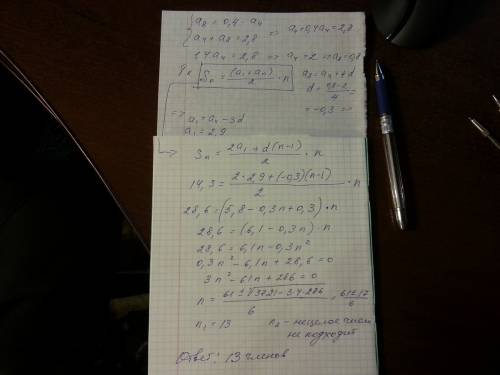 a₈ = 0,4 · a₄
a₄ + a₈ = 2,8 => a₄ + 0,4a₄ = 2,8
1,4a₄ = 2,8 => a₄ = 2 => a₈ = 0,8
Sₙ = (a₁ + aₙ)/2 · n
a₈ = a₄ + 4d
d = (0,8 - 2)/4 =
= -0,3 =>
=> a₁ = a₄ - 3d
a₁ = 2,9
Sₙ = (2a₁ + d(n-1))/2 · n
14,3 = (2·2,9 + (-0,3)(n-1))/2 · n
28,6 = (5,8 - 0,3n + 0,3) · n
28,6 = (6,1 - 0,3n) · n
28,6 = 6,1n - 0,3n²
0,3n² - 6,1n + 28,6 = 0
3n² - 61n + 286 = 0
n = (61 ± √(3721 - 3·4·286))/6 = (61 ± 17)/6
n₁ = 13 n₂ - нецелое число
не подходит
Ответ: 13 членов